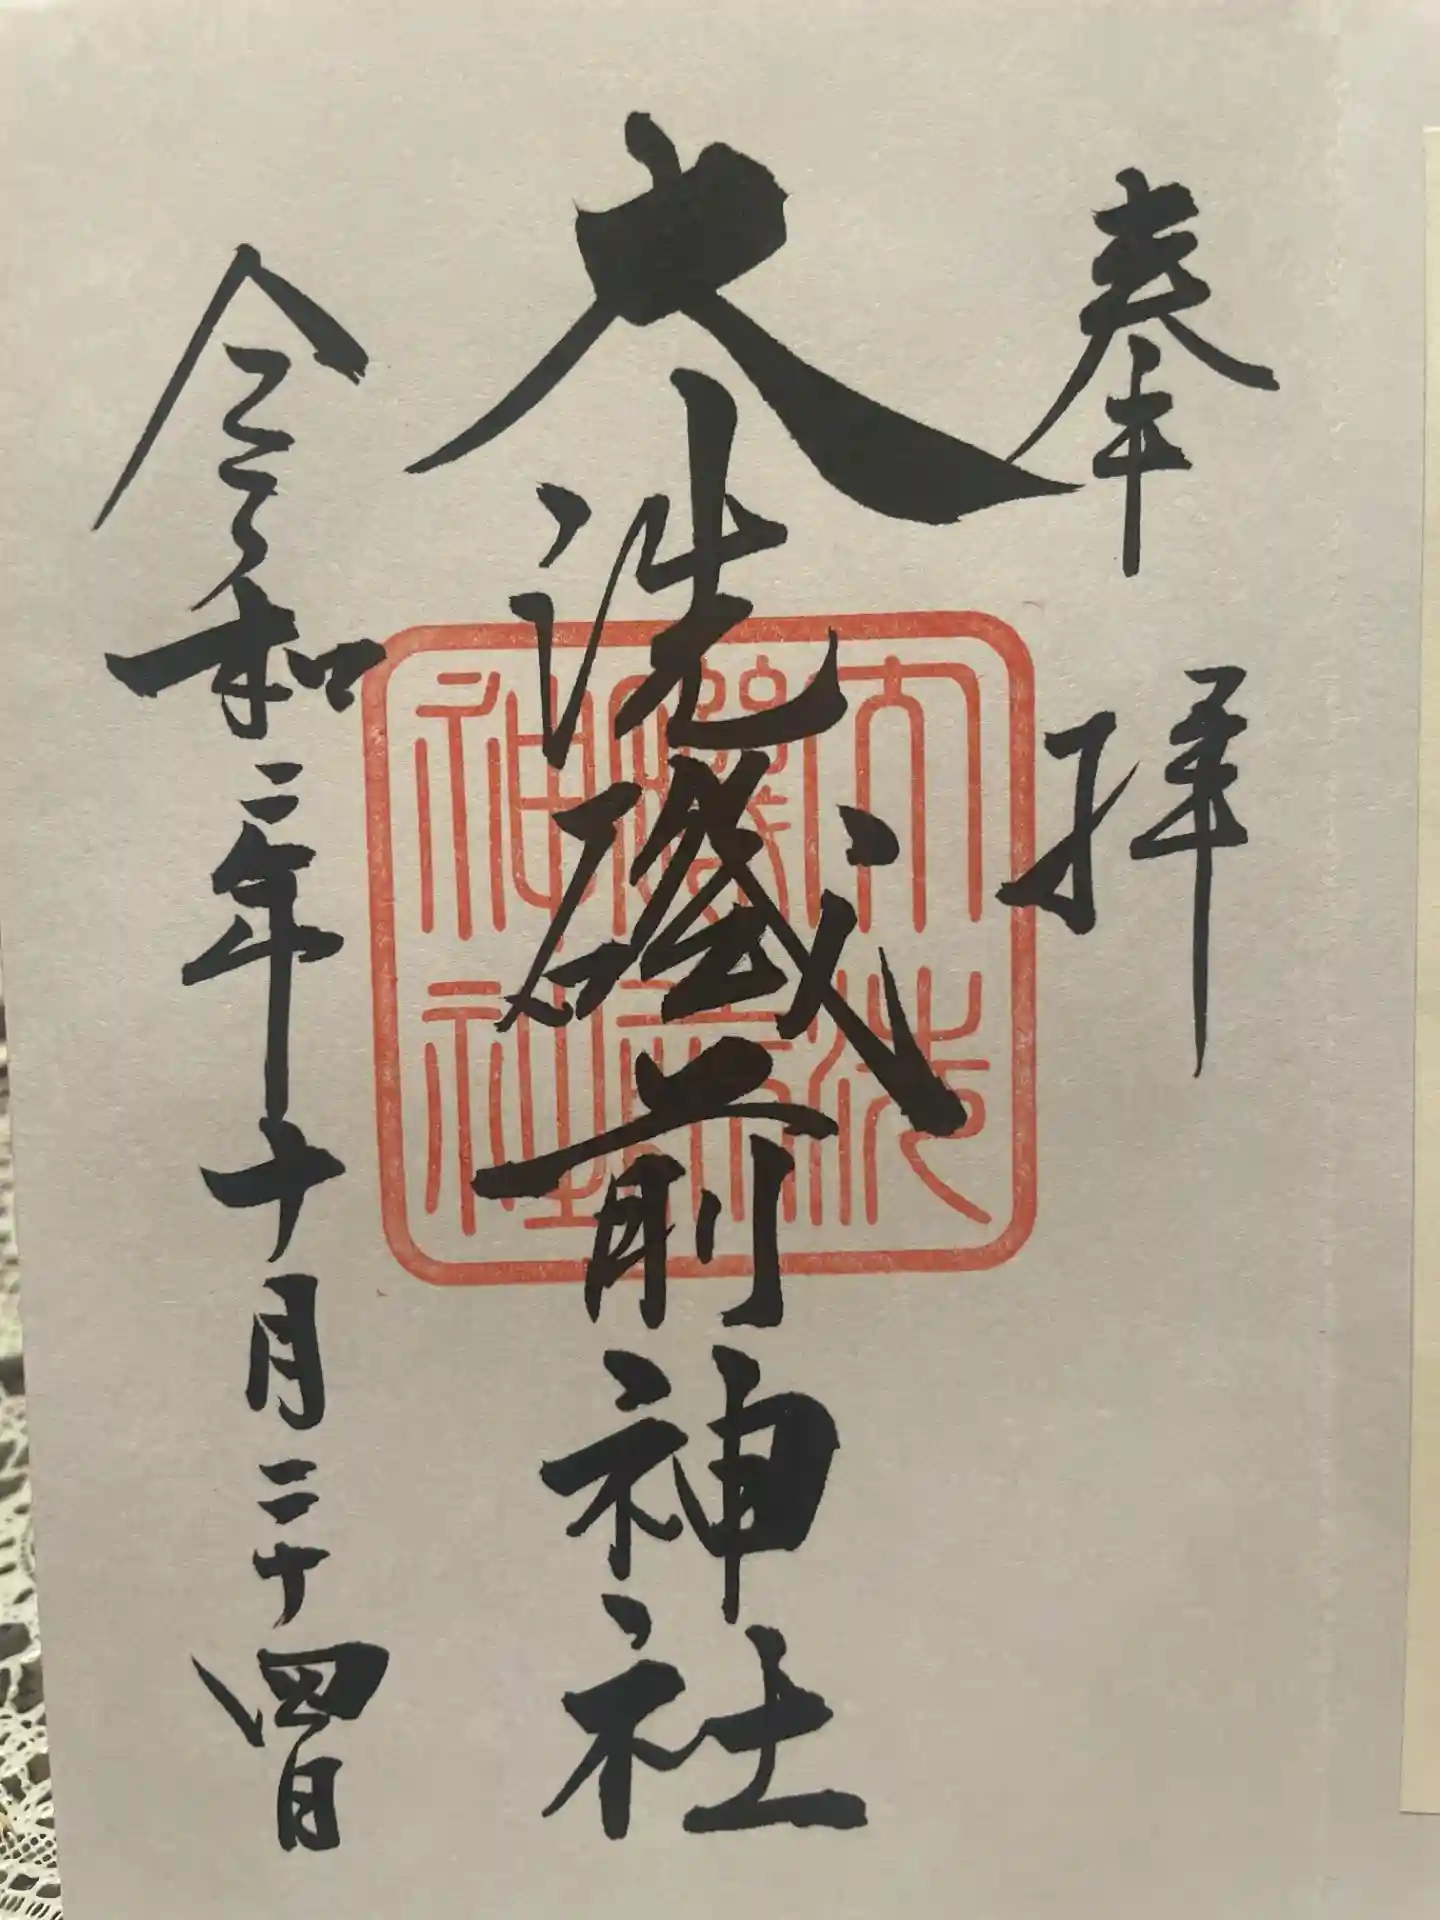 奉拝
大洗磯前神社
大洗
磯前
神社
令和二年十月二十四日